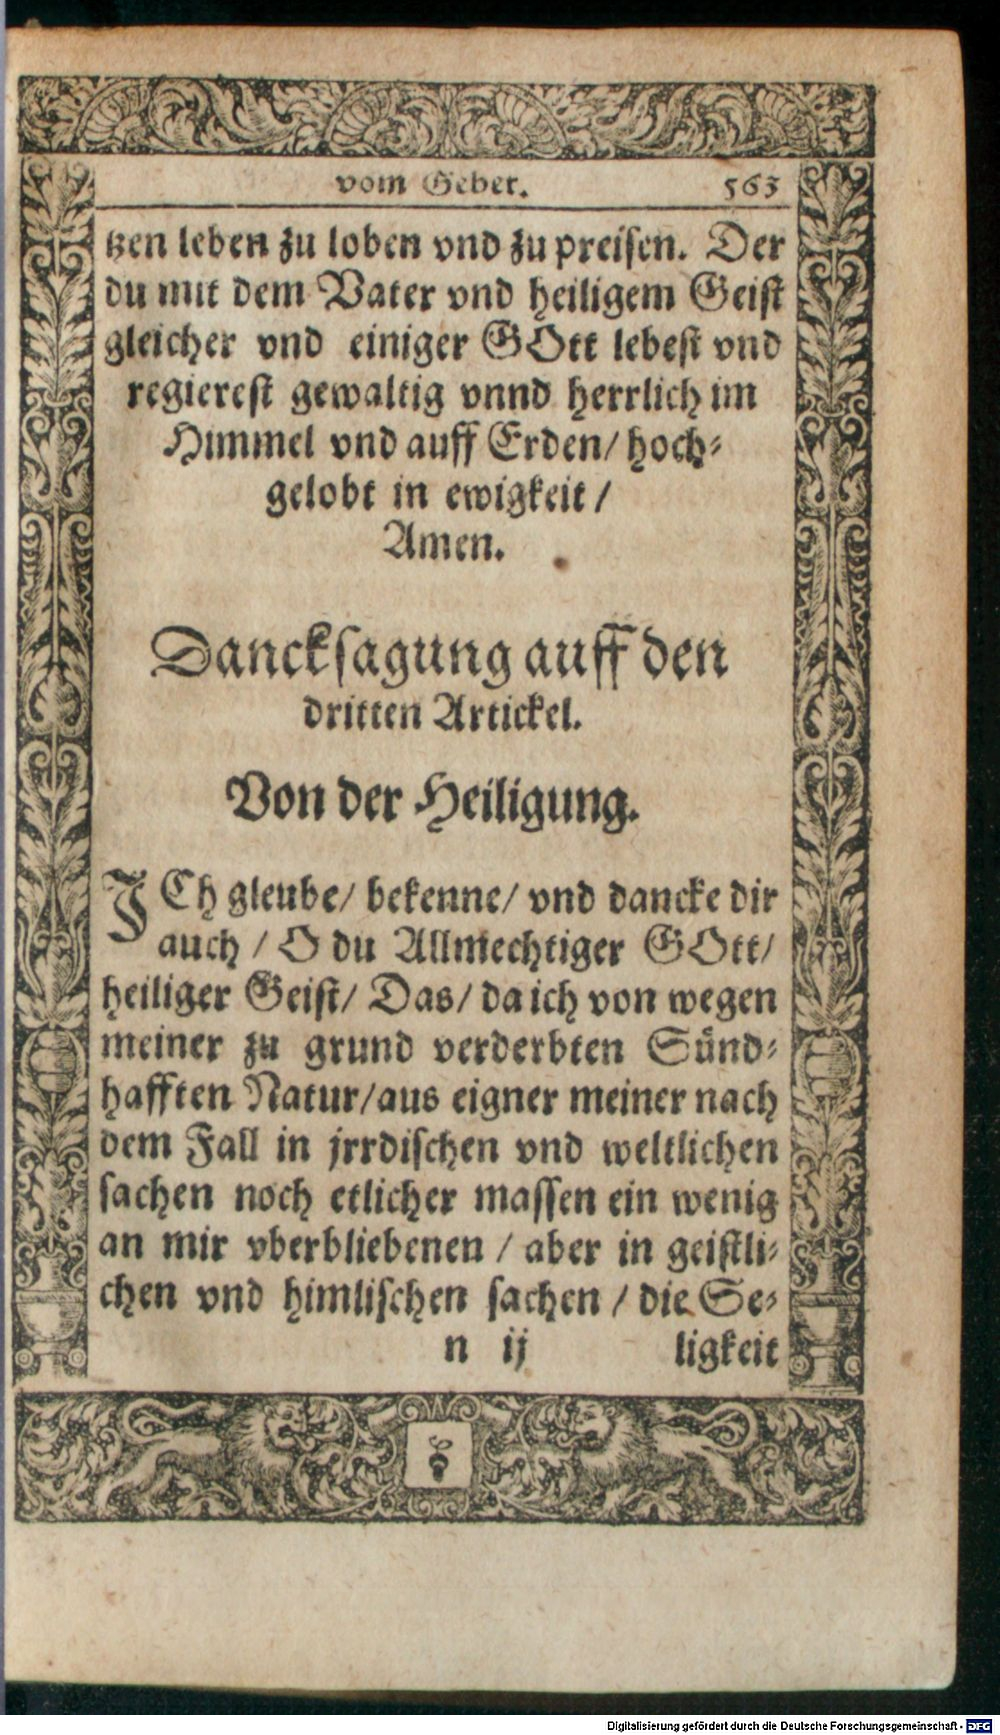 vom Gebet. 563
tzen leben zu loben vnd zu preisen. Der
du mit dem Vater vnd heiligem Geist
gleicher vnd einiger GOtt lebest vnd
regierest gewaltig vnnd herrlich im
Himmel vnd auff Erden/ hoch-
gelobt in ewigkeit /
Amen.
Dancksagung auff den
dritten Artickel.
Von der Heiligung.
ICh gleube/ bekenne/ vnd dancke dir
auch / O du Allmechtiger GOtt/
heiliger Geist/ Das/ da ich von wegen
meiner zu grund verderbten Sünd-
hafften Natur/aus eigner meiner nach
dem Fall in jrrdischen vnd weltlichen
sachen noch etlicher massen ein wenig
an mir vberbliebenen / aber in geistli-
chen vnd himlischen sachen / die Se-
n ij ligkeit
Digitalisierung gefördert durch die Deutsche Forschungsgemeinschaft - DFG